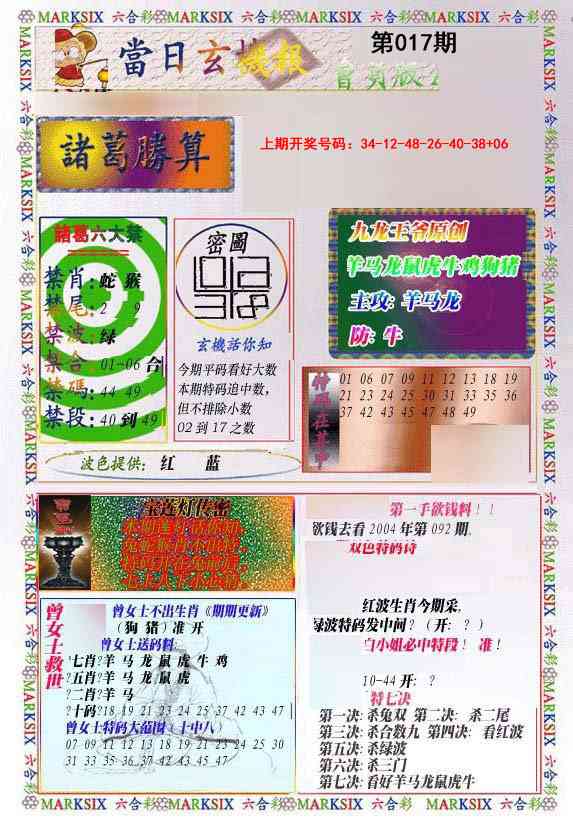 MARKSIX 六合彩 MARKSIX 六合彩 MARKSIX 六合彩 MARKSIX 六合彩
當日玄機報
第017期
諸葛勝算
上期开奖号码：34-12-48-26-40-38+06
諸葛六大禁
禁肖:蛇 猴
禁尾:2 9
禁波:绿
禁合:01-06 合
禁碼:44 49
禁段:40 到 49
密圖
玄機話你知
今期平码看好大数
本期特码追中数，
但不排除小数
02 到 17 之数
九龙王爷原创
羊马龙鼠虎牛鸡狗猪
主攻: 羊马龙
防: 牛
01 06 07 09 11 12 13 18 19
21 23 24 25 30 31 33 35 36
37 42 43 45 47 48 49
波色提供: 红 蓝
宝莲灯传密
第一手欲钱料！！
欲钱去看 2004 年第 092 期.
双色特码诗
曾女士救世
曾女士不出生肖《期期更新》
(狗 猪) 准 开
曾女士送码料:
?七肖?羊 马 龙 鼠 虎 牛 鸡
?五肖?羊 马 龙 鼠 虎
?二肖?羊 马
?十码?18 19 21 23 24 25 37 42 43 47
曾女士特码大范围（十中八）
07 09 11 12 13 18 19 21 23 24 25 30
31 33 35 36 37 42 43 45 47
红波生肖今期采,
绿波特码发中间? (开: ? )
白小姐必中特段！ 准！
10-44 开: ?
特七决
第一决: 杀兔双 第二决: 杀二尾
第三决: 杀合数九 第四决: 看红波
第五决: 杀绿波
第六决: 杀三门
第七决: 看好羊马龙鼠虎牛
MARKSIX 六合彩 MARKSIX 六合彩 MARKSIX 六合彩 MARKSIX 六合彩